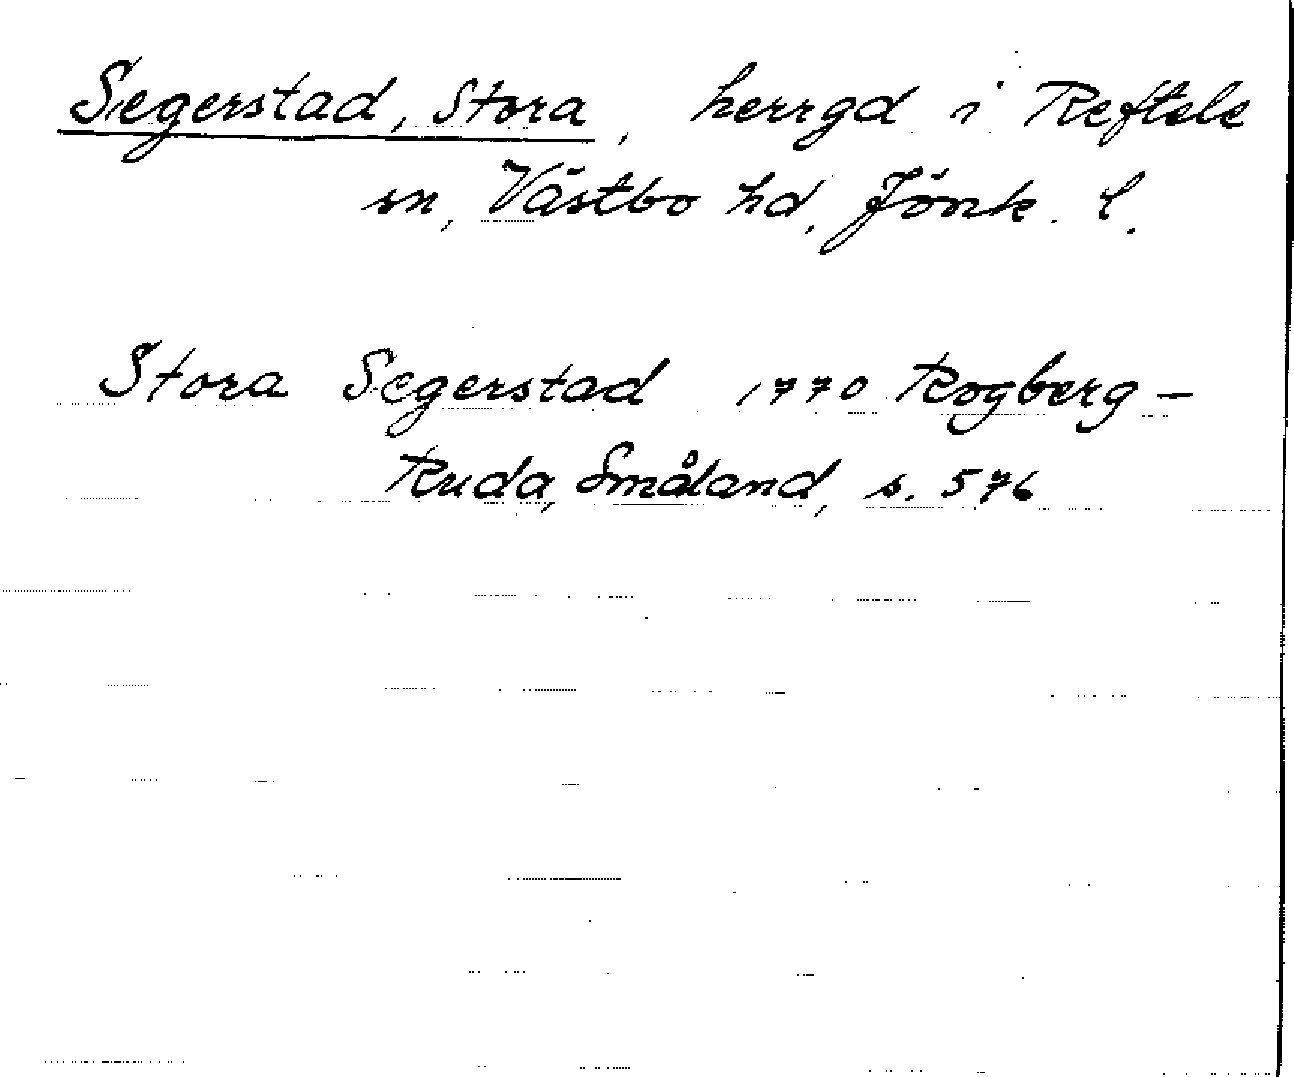 Segerstad, Stora, herrgd i Reftele
sn, Västbo hd, Jönk. l.
Stora Segerstad 1770 Rogberg –
Ruda, Småland, s. 576